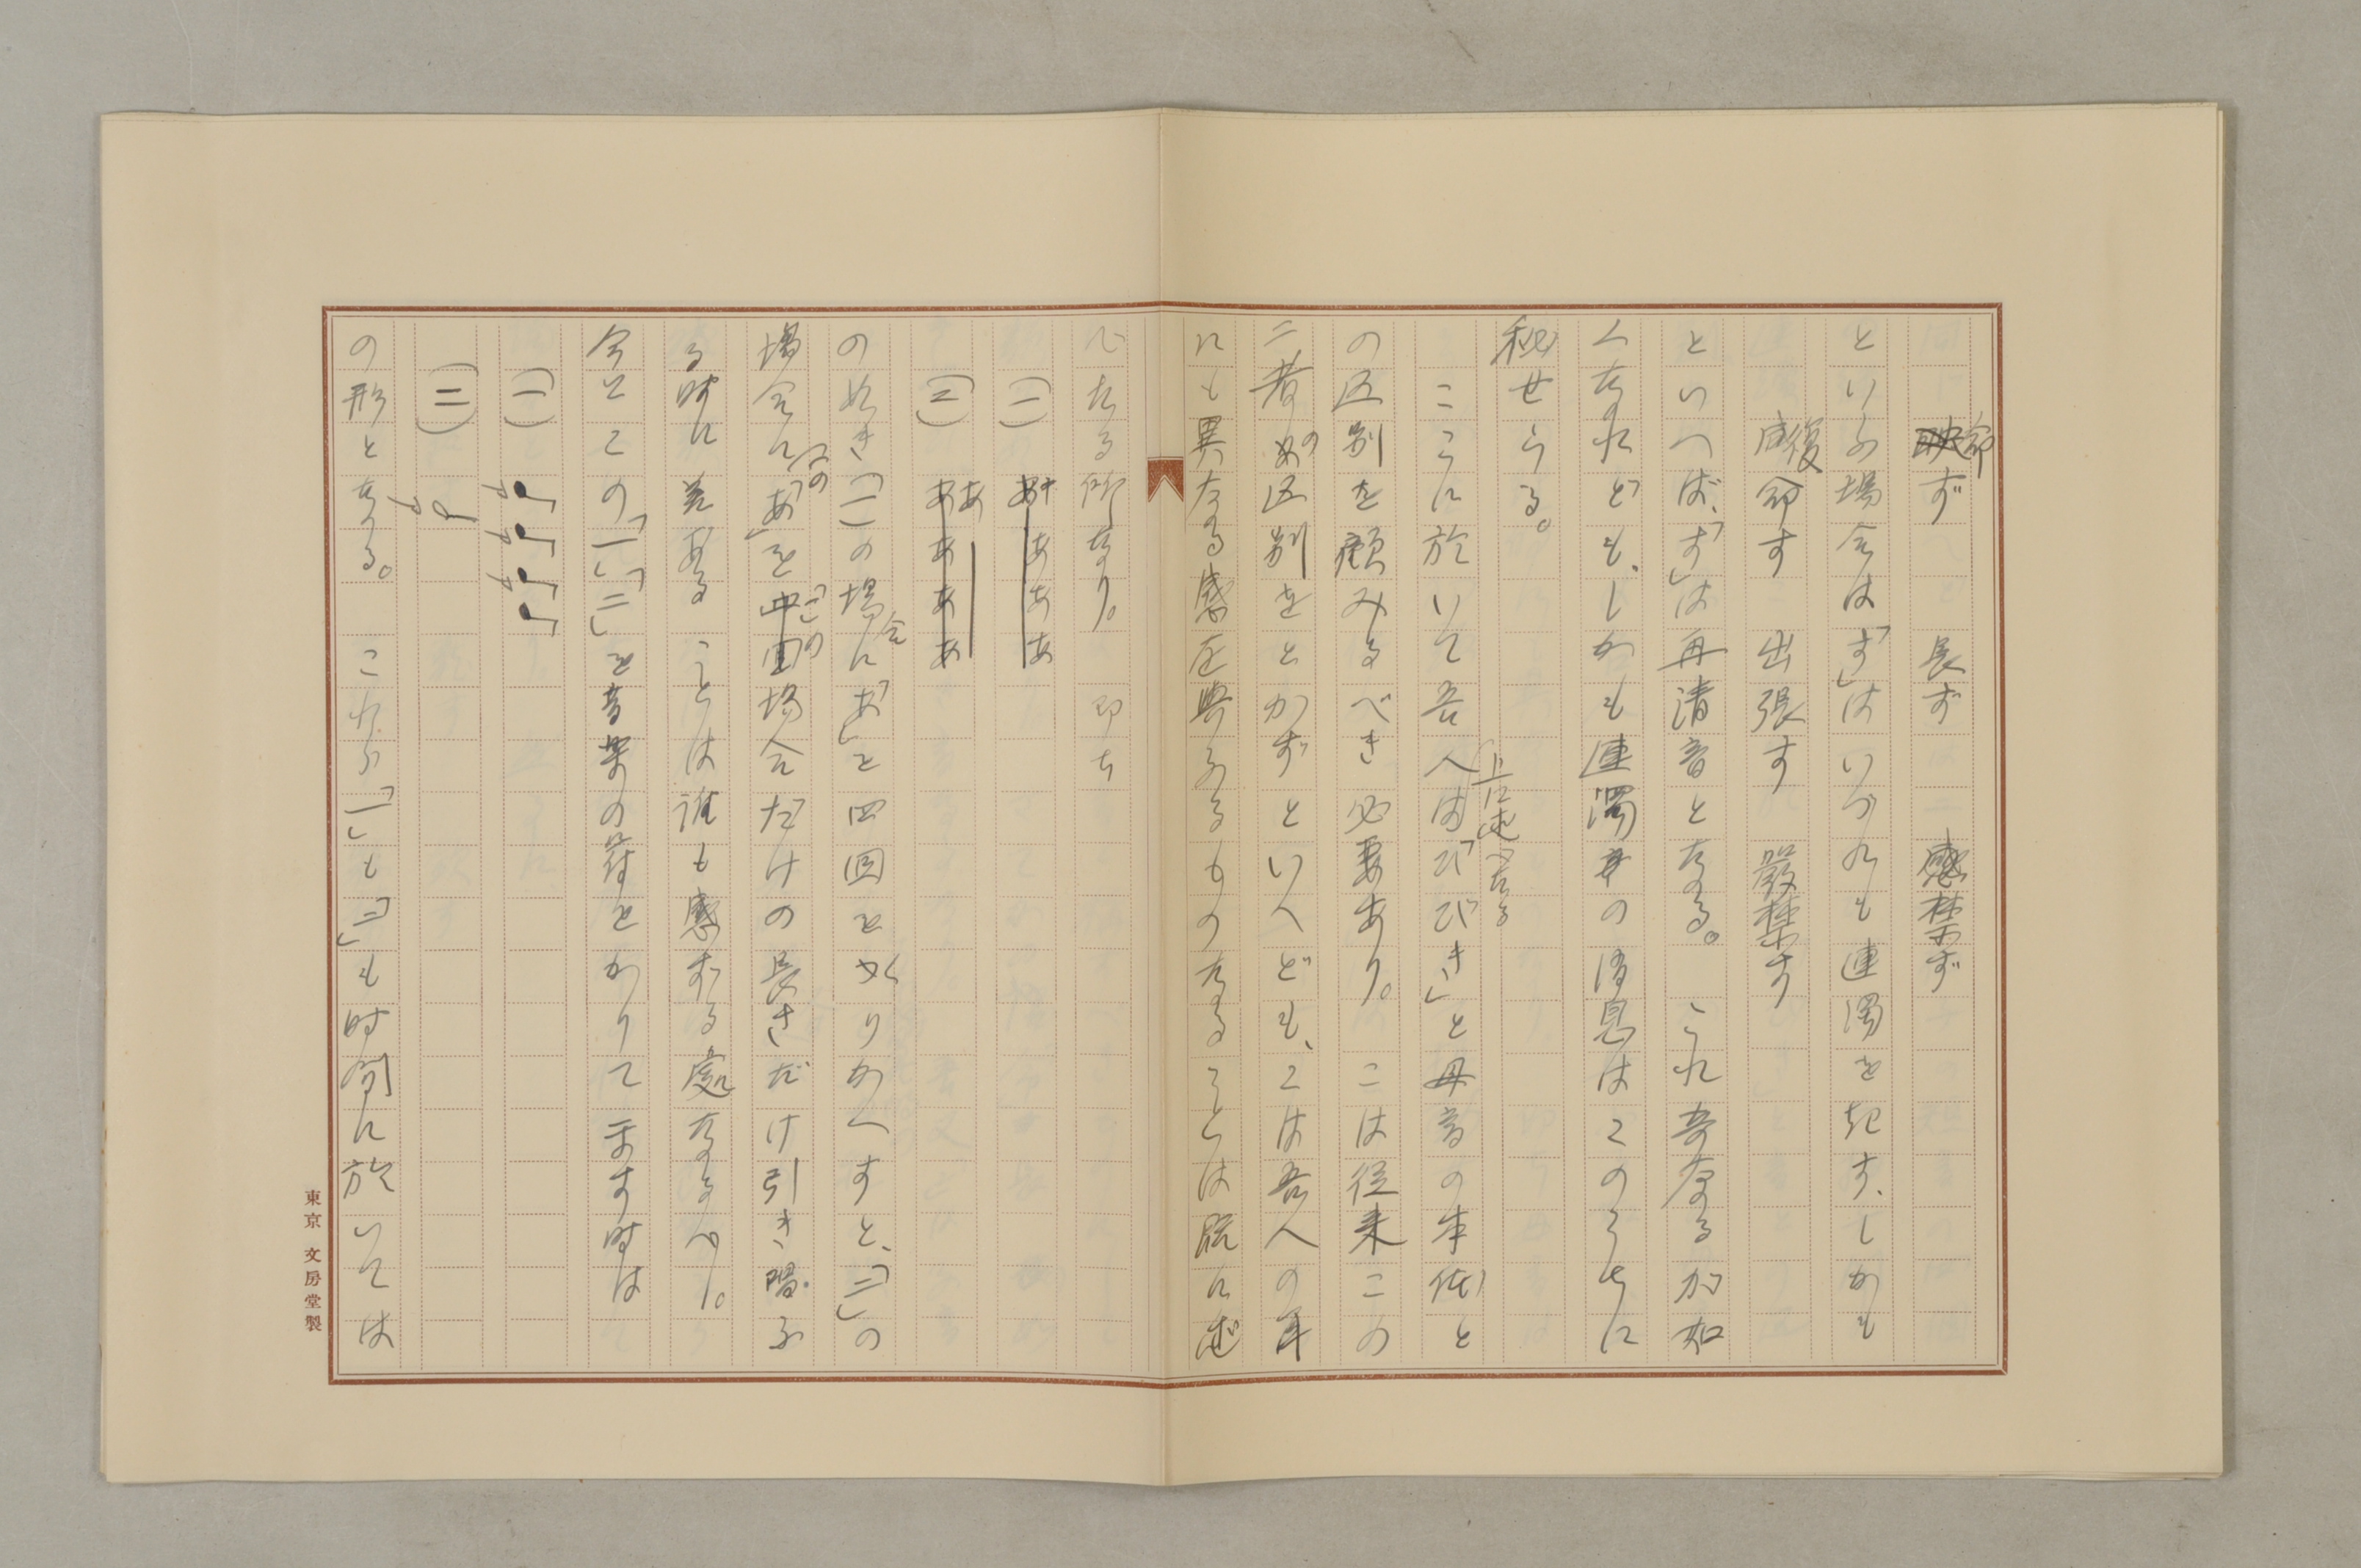 命ず　長ず　感禁ず
といふ場合は「ず」はいづれも連濁を起す、しかも
復命す　出張す　厳禁す
といへば、「す」は再清音となる。これ奇なるが如
くなれども、しかも連濁の消息はこのうちに
秘せらる。
ここに於いて吾人は上に述べたる「ひびき」と母音の本体と
の区別を顧みるべき必要あり。こは従来この
二者の区別をとかずといへども、こは吾人の耳
にも異なる感を与ふるものなることは既に述
べたる所なり。即ち
(一)　ああああ
(二)　ああああ
の如き(一)の場合に「あ」を四回をくりかへすと、「二」の
場合に「あ」を「この場合だけの長さだけ引き陽ふ
る時に差あることは誰も感ずる処なるべし。
今とこの「一」「二」を音楽の符とかりてます時は
(一)　♪♪♪♪
(二)
の形となる。これら「一」も「二」も時間に於いては
東京 文房堂製